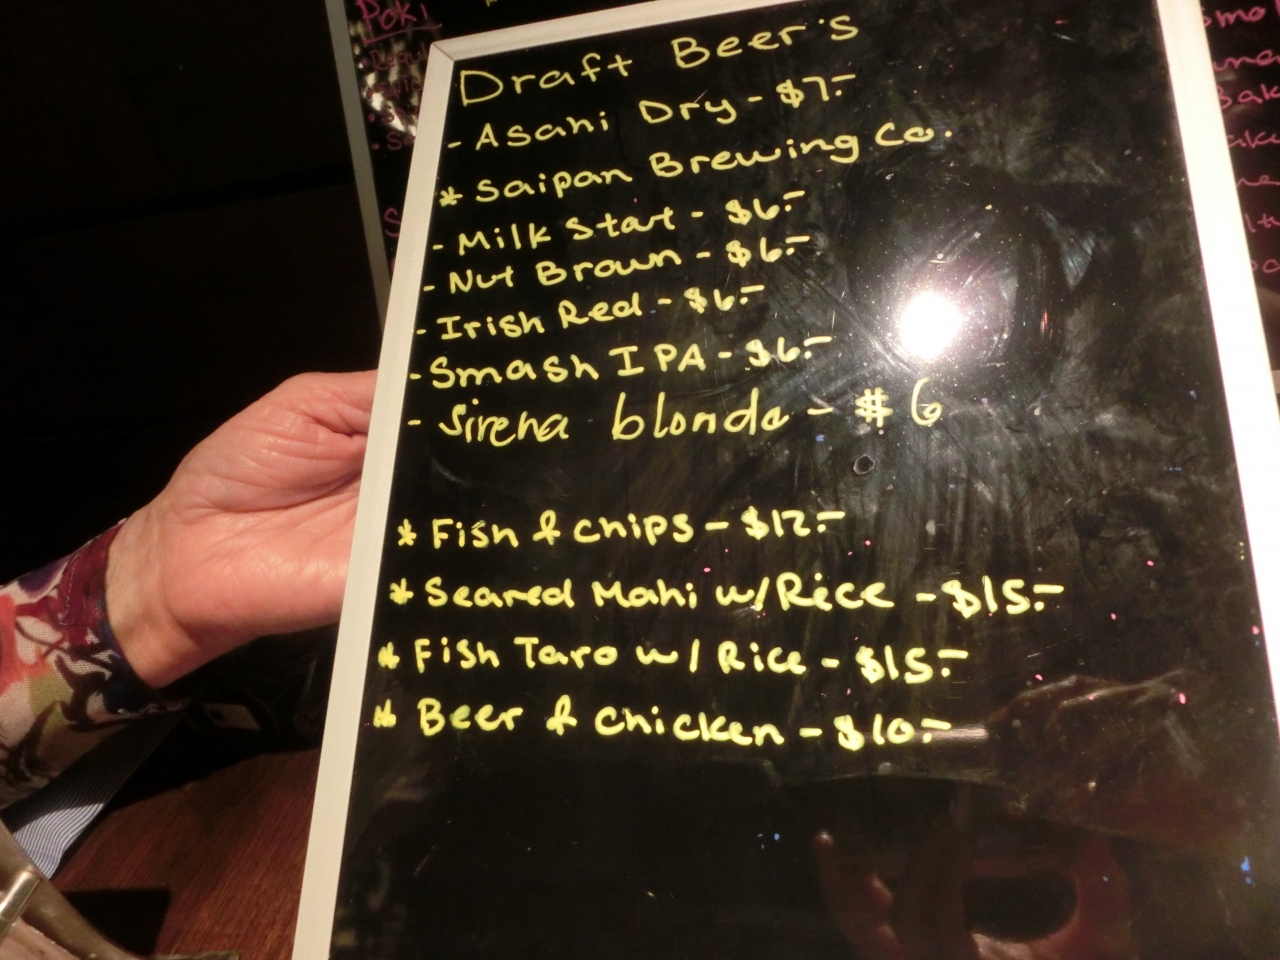 Poki
Draft Beer's
- Asahi Dry - $7.-
* Saipan Brewing Co.
- Milk Stout - $6.-
- Nut Brown - $6.-
- Irish Red - $6.-
- Smash IPA - $6.-
- Sirena blonde - $6
* Fish & chips - $12.-
* Seared Mahi w/Rice - $15.-
* Fish Taro w/ Rice - $15.-
* Beer & chicken - $10.-